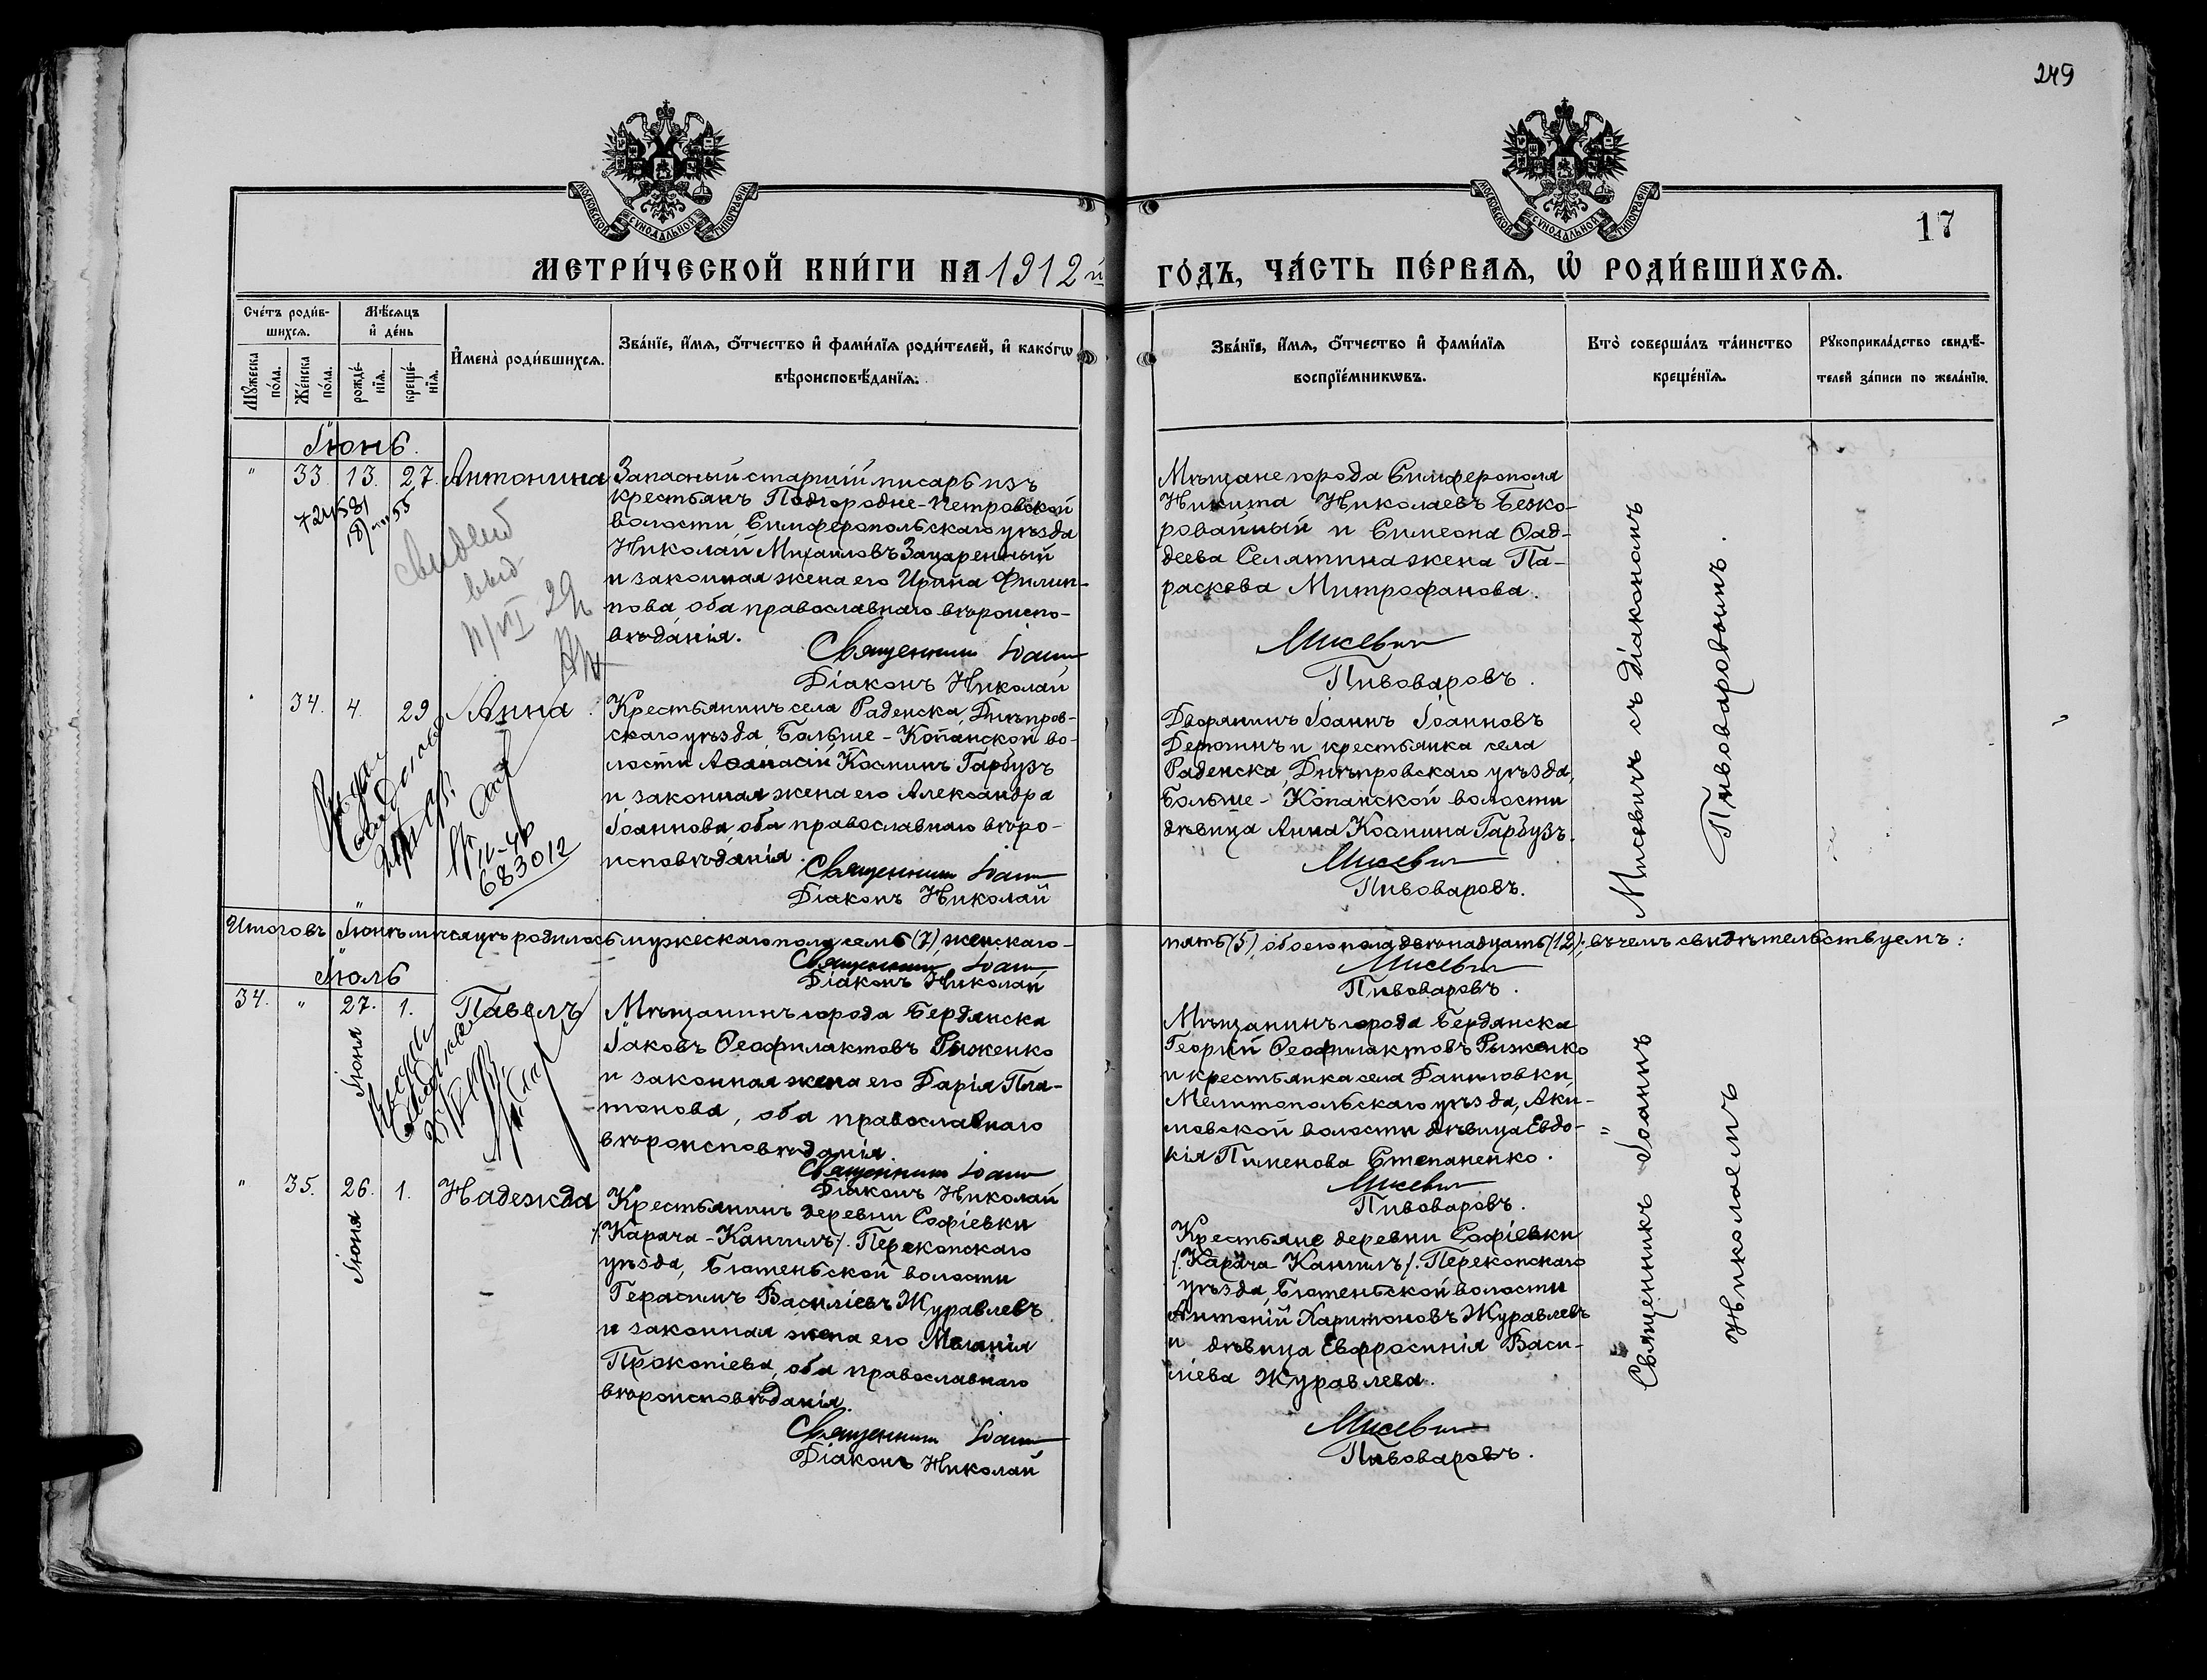 249
МОСКОВСКОЙ СУНОДАЛЬНОЙ ТИПОГРАФІИ
МОСКОВСКОЙ СУНОДАЛЬНОЙ ТИПОГРАФІИ
17
МЕТРИ́ЧЕСКОЙ КНИ́ГИ НА 1912 й
ГО́ДЪ, ЧА́СТЬ ПЕ́РВАѦ, Ѡ҆ РОДИ́ВШИХСѦ.
Сче́тъ роди́в-
шихсѧ.
Мѣ́сѧцъ
и҆ де́нь
Мꙋ́жеска
по́ла.
Же́нска
по́ла.
рожде́-
нїѧ.
креще́-
нїѧ.
И҆мена̀ роди́вшихсѧ.
Зва́нїе, и҆́мѧ, ѻ҆́тчество и҆ фами́лїѧ роди́телей, и҆ како́гѡ
вѣроисповѣ́данїѧ.
Зва́нїе, и҆́мѧ, ѻ҆́тчество и҆ фами́лїѧ
воспрїе́мникѡвъ.
Кто̀ соверша́лъ та́инство
креще́нїѧ.
Рꙋкоприкла́дство свидѣ́-
телей за́писи по жела́нїю.
Іюнь.
" 33. 13. 27. Антонина
Запасный старшій писарь изъ
крестьянъ Подгородне-Петровской
волости Симферопольскаго уѣзда
Николай Михаиловъ Зацаренный
и законная жена его Ираида Филип-
пова, оба православнаго вѣроиспо-
вѣданія.
Священникъ Іоаннъ
Діаконъ Николай
Мѣщане города Симферополя
Никита Николаевъ Безко-
ровайный и Симеона Ѳад-
деева Селятина жена Па-
раскева Митрофанова.
Мисевичъ
Пивоваровъ.
свидет
выд
" 34. 4. 29 Анна.
Крестьянинъ села Раденска, Днѣпров-
скаго уѣзда, Больше-Копанской во-
лости Аѳанасій Косминъ Гарбузъ
и законная жена его Александра
Іоаннова, оба православнаго вѣро-
исповѣданія.
Священникъ Іоаннъ
Діаконъ Николай
Дворянинъ Іоаннъ Іоанновъ
и крестьянка села
Раденска, Днѣпровскаго уѣзда,
Больше-Копанской волости
дѣвица Анна Космина Гарбузъ.
Мисевичъ
Пивоваровъ.
IV-40
683012
Итого въ Іюнѣ мѣсяцѣ родилось мужескаго пола семь (7), женскаго-
пять (5), обоего пола двѣнадцать (12); въ чемъ свидѣтельствуемъ:
Священникъ Іоаннъ
Діаконъ Николай
Мисевичъ
Пивоваровъ.
Іюль
34. " 27. 1. Павелъ
Іюня
Мѣщанинъ города Бердянска
Іаковъ Ѳеофилактовъ Рыженко
и законная жена его Дарія Пла-
тонова, оба православнаго
вѣроисповѣданія.
Священникъ Іоаннъ
Діаконъ Николай
Мѣщанинъ города Бердянска
Георгій Ѳеофилактовъ Рыженко
и крестьянка села Даниловки
Мелитопольскаго уѣзда, Аки-
мовской волости дѣвица Евдо-
кія Пименова Степаненко.
Мисевичъ
Пивоваровъ.
" 35. 26. 1. Надежда
Іюня
Крестьянинъ деревни Софіевки
/:Карача-Кангилъ/: Перекопскаго
уѣзда, Бютеньской волости
Герасимъ Василіевъ Журавлевъ
и законная жена его Меланія
Прокопіева, оба православнаго
вѣроисповѣданія.
Священникъ Іоаннъ
Діаконъ Николай
Крестьяне деревни Софіевки
/:Карача-Кангилъ/: Перекопскаго
уѣзда, Бютеньской волости
Антоній Харитоновъ Журавлевъ
и дѣвица Евфросинія Васи-
ліева Журавлева.
Мисевичъ
Пивоваровъ.
Священникъ Іоаннъ Мисевичъ съ діакономъ
Николаемъ Пивоваровымъ.